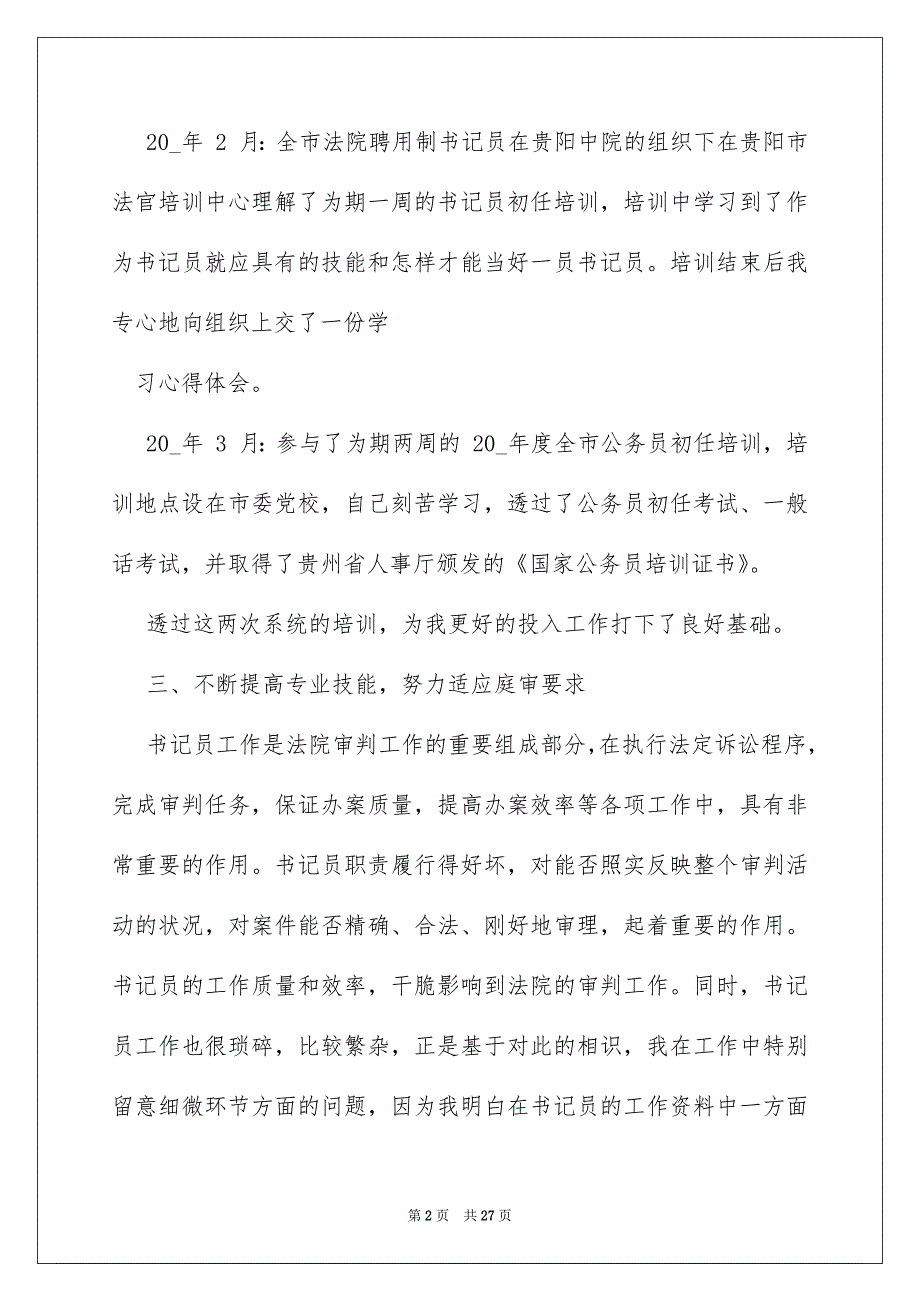 20_年 2 月：全市法院聘用制书记员在贵阳中院的组织下在贵阳市
法官培训中心理解了为期一周的书记员初任培训，培训中学习到了作
为书记员就应具有的技能和怎样才能当好一员书记员。培训结束后我
专心地向组织上交了一份学
习心得体会。
20_年 3 月：参与了为期两周的 20_年度全市公务员初任培训，培
训地点设在市委党校，自己刻苦学习，透过了公务员初任考试、一般
话考试，并取得了贵州省人事厅颁发的《国家公务员培训证书》。
透过这两次系统的培训，为我更好的投入工作打下了良好基础。
三、不断提高专业技能，努力适应庭审要求
书记员工作是法院审判工作的重要组成部分，在执行法定诉讼程序，
完成审判任务，保证办案质量，提高办案效率等各项工作中，具有非
常重要的作用。书记员职责履行得好坏，对能否照实反映整个审判活
动的状况，对案件能否精确、合法、刚好地审理，起着重要的作用。
书记员的工作质量和效率，干脆影响到法院的审判工作。同时，书记
员工作也很琐碎，比较繁杂，正是基于对此的相识，我在工作中特别
留意细微环节方面的问题，因为我明白在书记员的工作资料中一方面
第 2 页 共 27 页